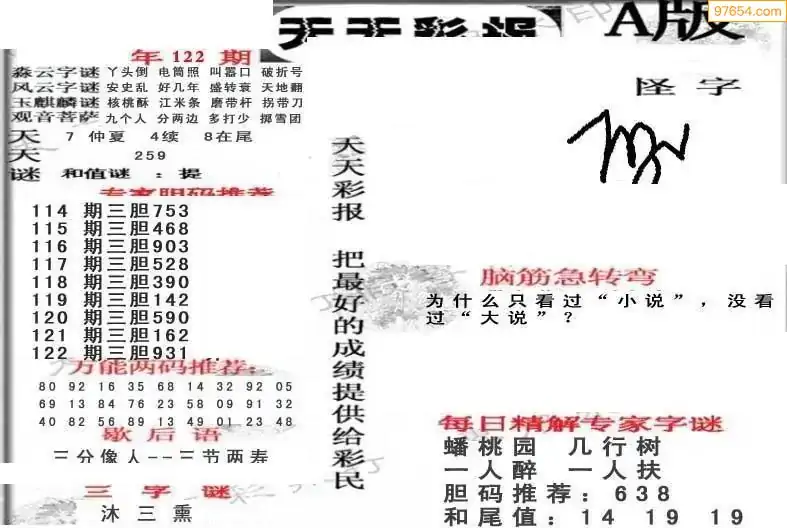 97654.com
天天彩报 A版
年 122 期
森云字谜 丫头倒 电筒照 叫嚣口 破折号
风云字谜 安史乱 好几年 盛转衰 天地翻
玉麒麟谜 核桃酥 江米条 磨带杆 拐带刀
观音菩萨 九个人 分两边 多打少 掷雪团
天 7 仲夏 4续 8在尾
天 259
谜 和值谜 : 提
专家胆码推荐
114 期三胆753
115 期三胆468
116 期三胆903
117 期三胆528
118 期三胆390
119 期三胆142
120 期三胆590
121 期三胆162
122 期三胆931
万能两码推荐:
80 92 16 35 68 14 32 92 05
69 13 84 76 23 58 09 91 32
40 82 56 89 13 49 01 23 48
歇后语
三分像人--三节两寿
三字谜
沐三熏
天天彩报 把最好的成绩提供给彩民
怪字
脑筋急转弯
为什么只看过“小说”，没看
过“大说”？
每日精解专家字谜
蟠桃园 几行树
一人醉 一人扶
胆码推荐: 638
和尾值: 14 19 19